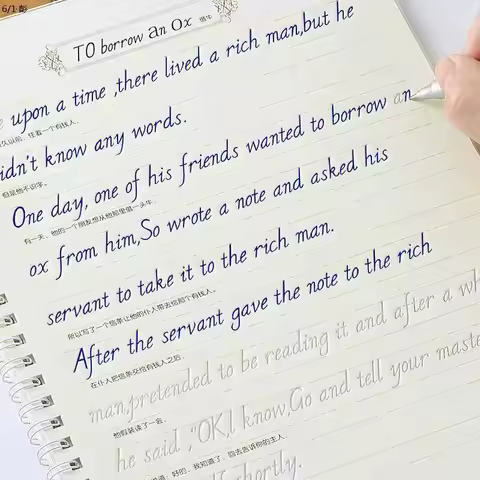 6/1·彭
TO borrow an Ox 借牛
upon a time ,there lived a rich man,but he
久以前，住着一个有钱人，
idn't know any words.
但是他不识字。
One day, one of his friends wanted to borrow an
有一天，他的一个朋友想从他那里借一头牛，
ox from him,So wrote a note and asked his
servant to take it to the rich man.
所以写了一个信条让他的仆人带去给那个有钱人。
After the servant gave the note to the rich
在仆人把信条交给有钱人之后，
man,pretended to be reading it and after a wh
他假装读了一会，
he said ,"OK,I know,Go and tell your maste
说道：好的，我知道了，回去告诉你的主人
shortly.